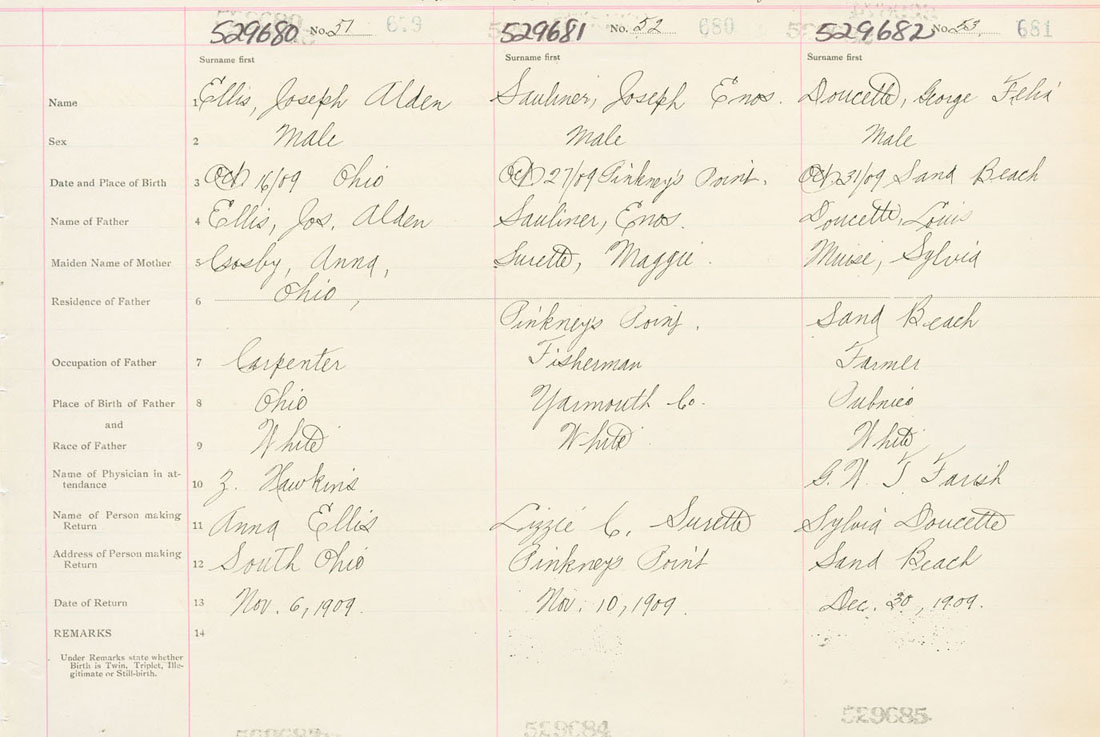 529680 No. 51 679 529681 No. 52 680 529682 No. 53 681
Surname first Surname first Surname first
Name 1 Ellis, Joseph Alden Sauliner, Joseph Enos. Doucette, George
Sex 2 Male Male Male
Date and Place of Birth 3 Oct 16/09 Ohio Oct 27/09 Pinkney's Point. Oct. 31/09 Sand Beach
Name of Father 4 Ellis, Jos. Alden Sauliner, Enos. Doucette, Louis
Maiden Name of Mother 5 Crosby, Anna, Surette, Maggie. Muise, Sylvia
Residence of Father 6 Ohio, Pinkney's Point. Sand Beach
Occupation of Father 7 Carpenter Fisherman Farmer
Place of Birth of Father 8 Ohio Yarmouth Co. Pubnico
and
Race of Father 9 White White White
Name of Physician in at-
tendance 10 Z. Hawkins G. W. T Farish
Name of Person making
Return 11 Anna Ellis Lizzie C. Surette Sylvia Doucette
Address of Person making
Return 12 South Ohio Pinkneys Point Sand Beach
Date of Return 13 Nov. 6, 1909. Nov. 10, 1909. Dec. 30, 1909.
REMARKS 14
Under Remarks state whether
Birth is Twin, Triplet, Ille-
gitimate or Still-birth.
529684 529685